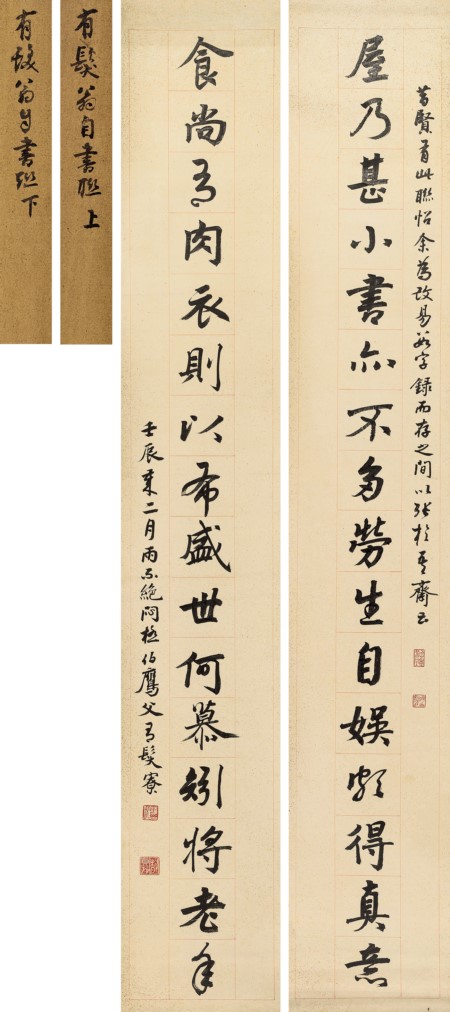 昔賢有此聯怡余為改易數字錄而存之間以張於吾齋云
屋乃甚小書亦不多勞生自娛頗得真意
食尚有肉衣則以布盛世何慕矧將老年
壬辰二月雨不絕悶極伯鷹父有髮寮
有髮翁自書聯上
有髮翁自書聯下